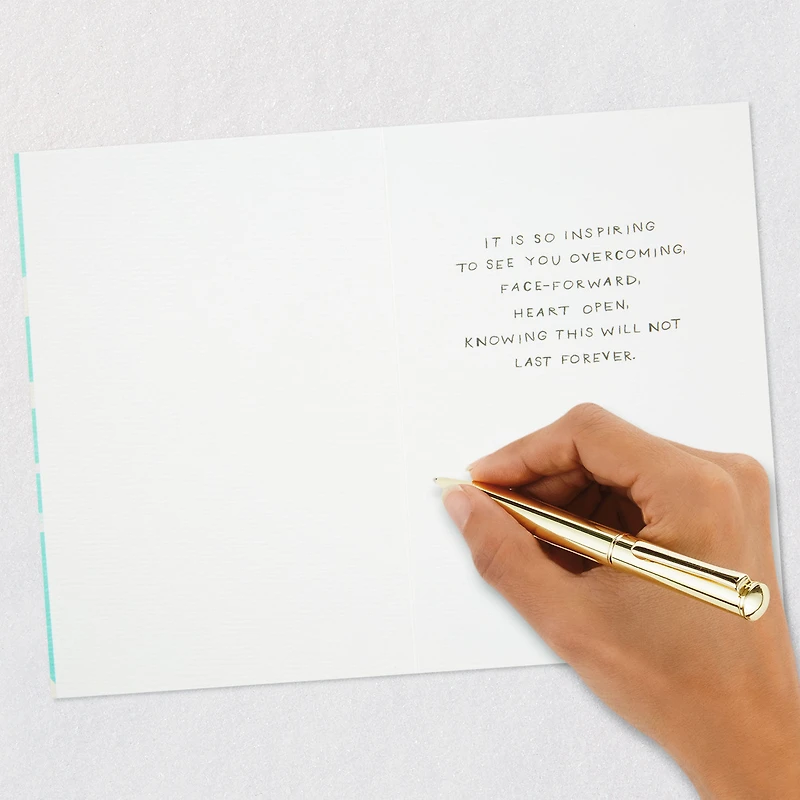 IT IS SO INSPIRING
TO SEE YOU OVERCOMING,
FACE-FORWARD,
HEART OPEN,
KNOWING THIS WILL NOT
LAST FOREVER.